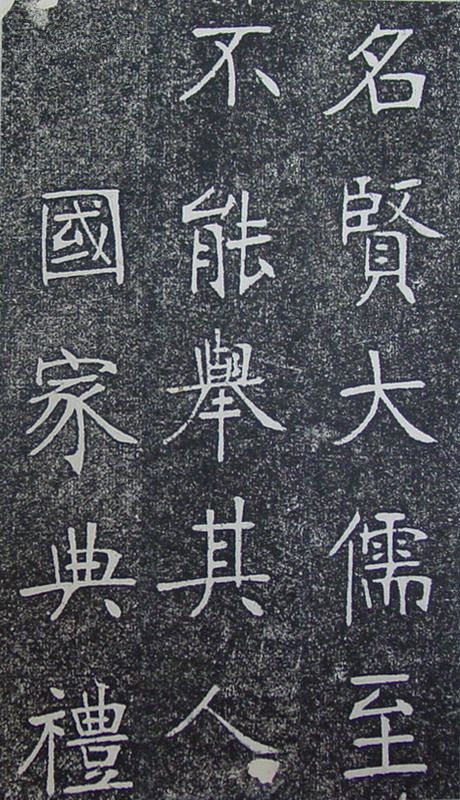 名賢大儒至
不能舉其人
國家典禮